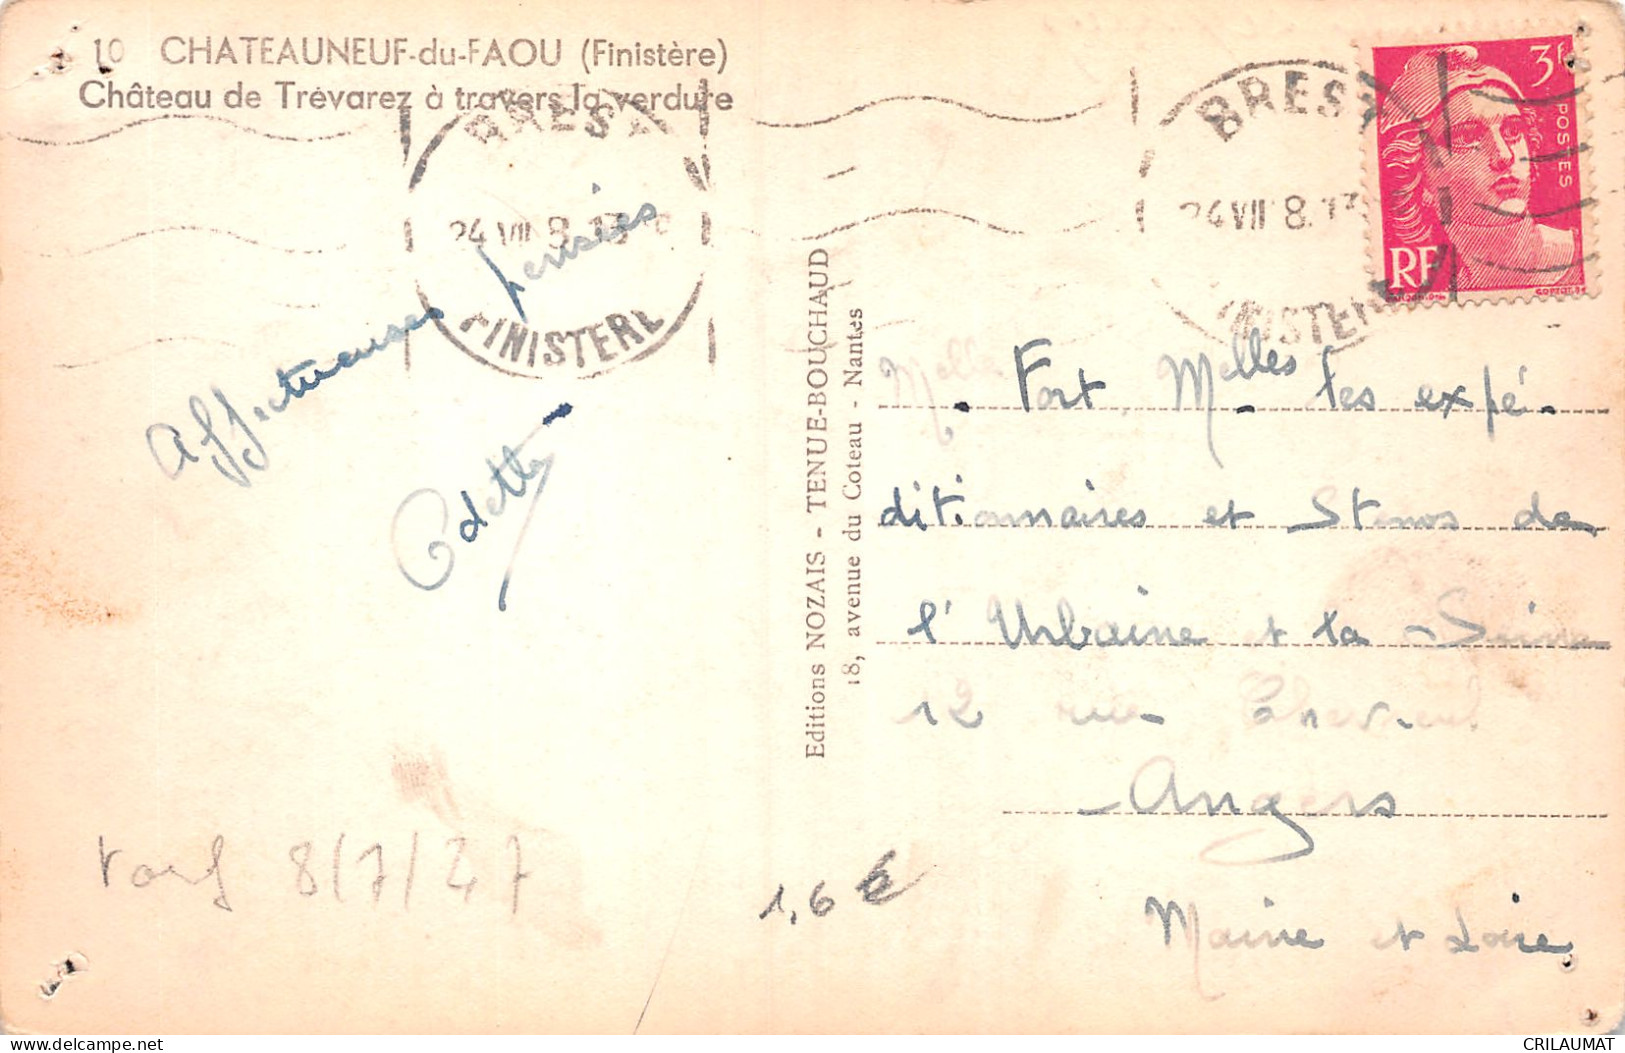 10 CHATEAUNEUF-du-FAOU (Finistère)
Château de Trévarez à travers la verdure
BREST
24 VII 8
FINISTERE
BREST
24 VII 8
FINISTERE
3f
POSTES
RF
Affectueuses pensées
Odette
Editions NOZAIS - TENUE-BOUCHAUD
18, avenue du Coteau - Nantes
M. Fort, Melles les expé-
ditionnaires et Sténos de
l'Urbaine et la Seine
12 rue Chevreul
Angers
Maine et Loire
tarif 8/7/47
1,6 €
CRILAUMAT